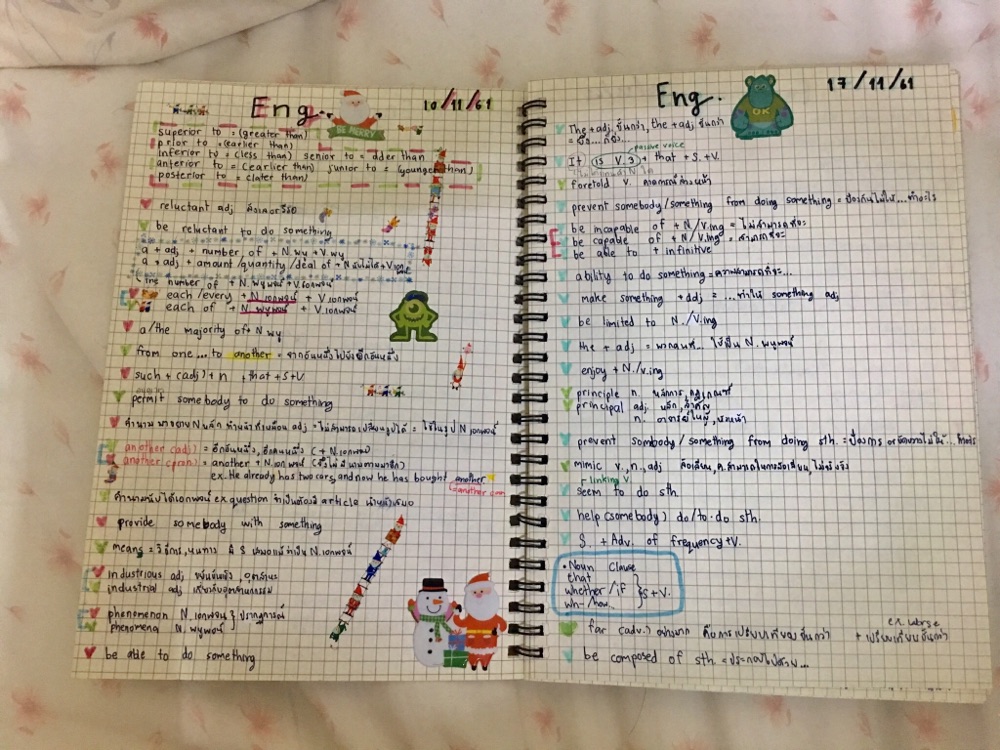 Eng. 10/11/61
BE MERRY
superior to = (greater than)
prior to = (earlier than)
inferior to = (less than) senior to = older than
anterior to = (earlier than) junior to = (younger than)
posterior to = (later than)
reluctant adj ลังเลหรือ
be reluctant to do something
a + adj + number of + N.พหู + V.พหู
a + adj + amount/quantity/deal of + N.นับไม่ได้ + V.เอก
the number of + N.พหูพจน์ + V.เอกพจน์
each/every + N.เอกพจน์ + V.เอกพจน์
each of + N.พหูพจน์ + V.เอกพจน์
a/the majority of + N.พหู
from one...to another = จากอันหนึ่งไปยังอีกอันหนึ่ง
such + (adj) + n + that + S + V
permit somebody to do something
คำนาม บางคำ N หลัก ทำหน้าที่เหมือน adj = ไม่สามารถเปลี่ยนรูปได้ = ใช้ในรูป N เอกพจน์
another (adj) = อีกอันหนึ่ง, อีกคนหนึ่ง (+ N.เอกพจน์)
another (pron) = another + N.เอกพจน์
ex. He already has two cars, and now he has bought another.
=another car
คำนามนับได้เอกพจน์ ex question จำเป็นต้องมี article นำหน้าเสมอ
provide somebody with something
means = วิธีการ, หนทาง มี s เสมอแม้ว่าเป็น N.เอกพจน์
industrious adj ขยันขันแข็ง, อุตสาหะ
industrial adj เกี่ยวกับอุตสาหกรรม
phenomenon N.เอกพจน์ } ปรากฏการณ์
phenomena N.พหูพจน์
be able to do something
Eng. 17/11/61
OK
The + adj ขั้นกว่า, the + adj ขั้นกว่า
= ยิ่ง...ก็ยิ่ง...
passive voice
It (is V.3) + that + S. + V.
foretold v. คาดการณ์ล่วงหน้า
prevent somebody/something from doing something = ป้องกันไม่ให้...ทำอะไร
be incapable of + N/V.ing = ไม่สามารถที่จะ
be capable of + N/V.ing = สามารถที่จะ
be able to + infinitive
ability to do something = ความสามารถที่จะ...
make something + adj = ...ทำให้ something adj
be limited to N./V.ing
the + adj = พวกคนที่... ใช้เป็น N.พหูพจน์
enjoy + N./V.ing
principle n. หลักการ, กฎเกณฑ์
principal adj. หลัก, สำคัญ
n. อาจารย์ใหญ่, หัวหน้า
prevent sombody/something from doing sth. = ป้องกัน or ขัดขวางไม่ให้...
mimic v., n., adj ล้อเลียน,
linking V.
seem to do sth.
help (somebody) do/to-do sth.
S. + Adv. of frequency + V.
• Noun Clause
that
whether/if } S + V.
wh-/how
far (adv.) อย่างมาก ex. worse
+ เปรียบเทียบขั้นกว่า
be composed of sth. = ประกอบไปด้วย...